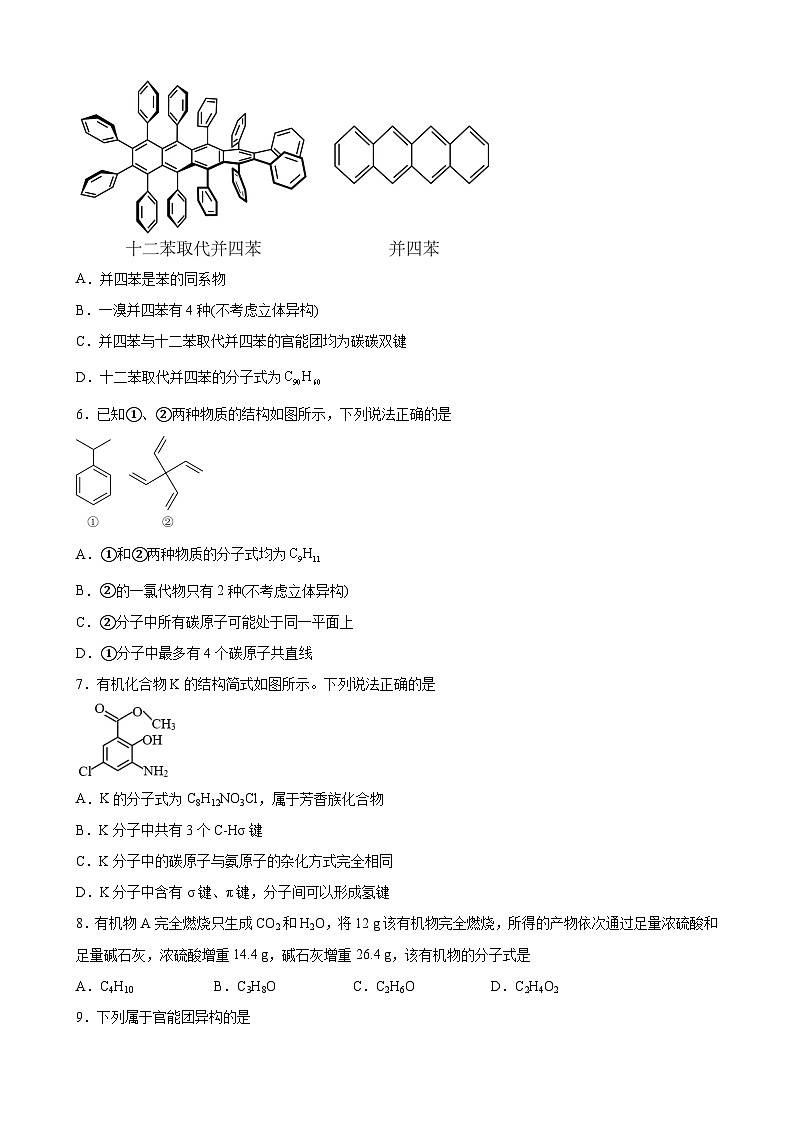 十二苯取代并四苯 并四苯
A．并四苯是苯的同系物
B．一溴并四苯有4种(不考虑立体异构)
C．并四苯与十二苯取代并四苯的官能团均为碳碳双键
D．十二苯取代并四苯的分子式为C₉₀H₆₀
6．已知①、②两种物质的结构如图所示，下列说法正确的是
① ②
A．①和②两种物质的分子式均为C₉H₁₁
B．②的一氯代物只有2种(不考虑立体异构)
C．②分子中所有碳原子可能处于同一平面上
D．①分子中最多有4个碳原子共直线
7．有机化合物K的结构简式如图所示。下列说法正确的是
O O CH₃
OH
Cl NH₂
A．K的分子式为C₈H₁₂NO₃Cl，属于芳香族化合物
B．K分子中共有3个C-Hσ键
C．K分子中的碳原子与氮原子的杂化方式完全相同
D．K分子中含有σ键、π键，分子间可以形成氢键
8．有机物A完全燃烧只生成CO₂和H₂O，将12 g该有机物完全燃烧，所得的产物依次通过足量浓硫酸和
足量碱石灰，浓硫酸增重14.4 g，碱石灰增重26.4 g，该有机物的分子式是
A．C₄H₁₀ B．C₃H₈O C．C₂H₆O D．C₂H₄O₂
9．下列属于官能团异构的是